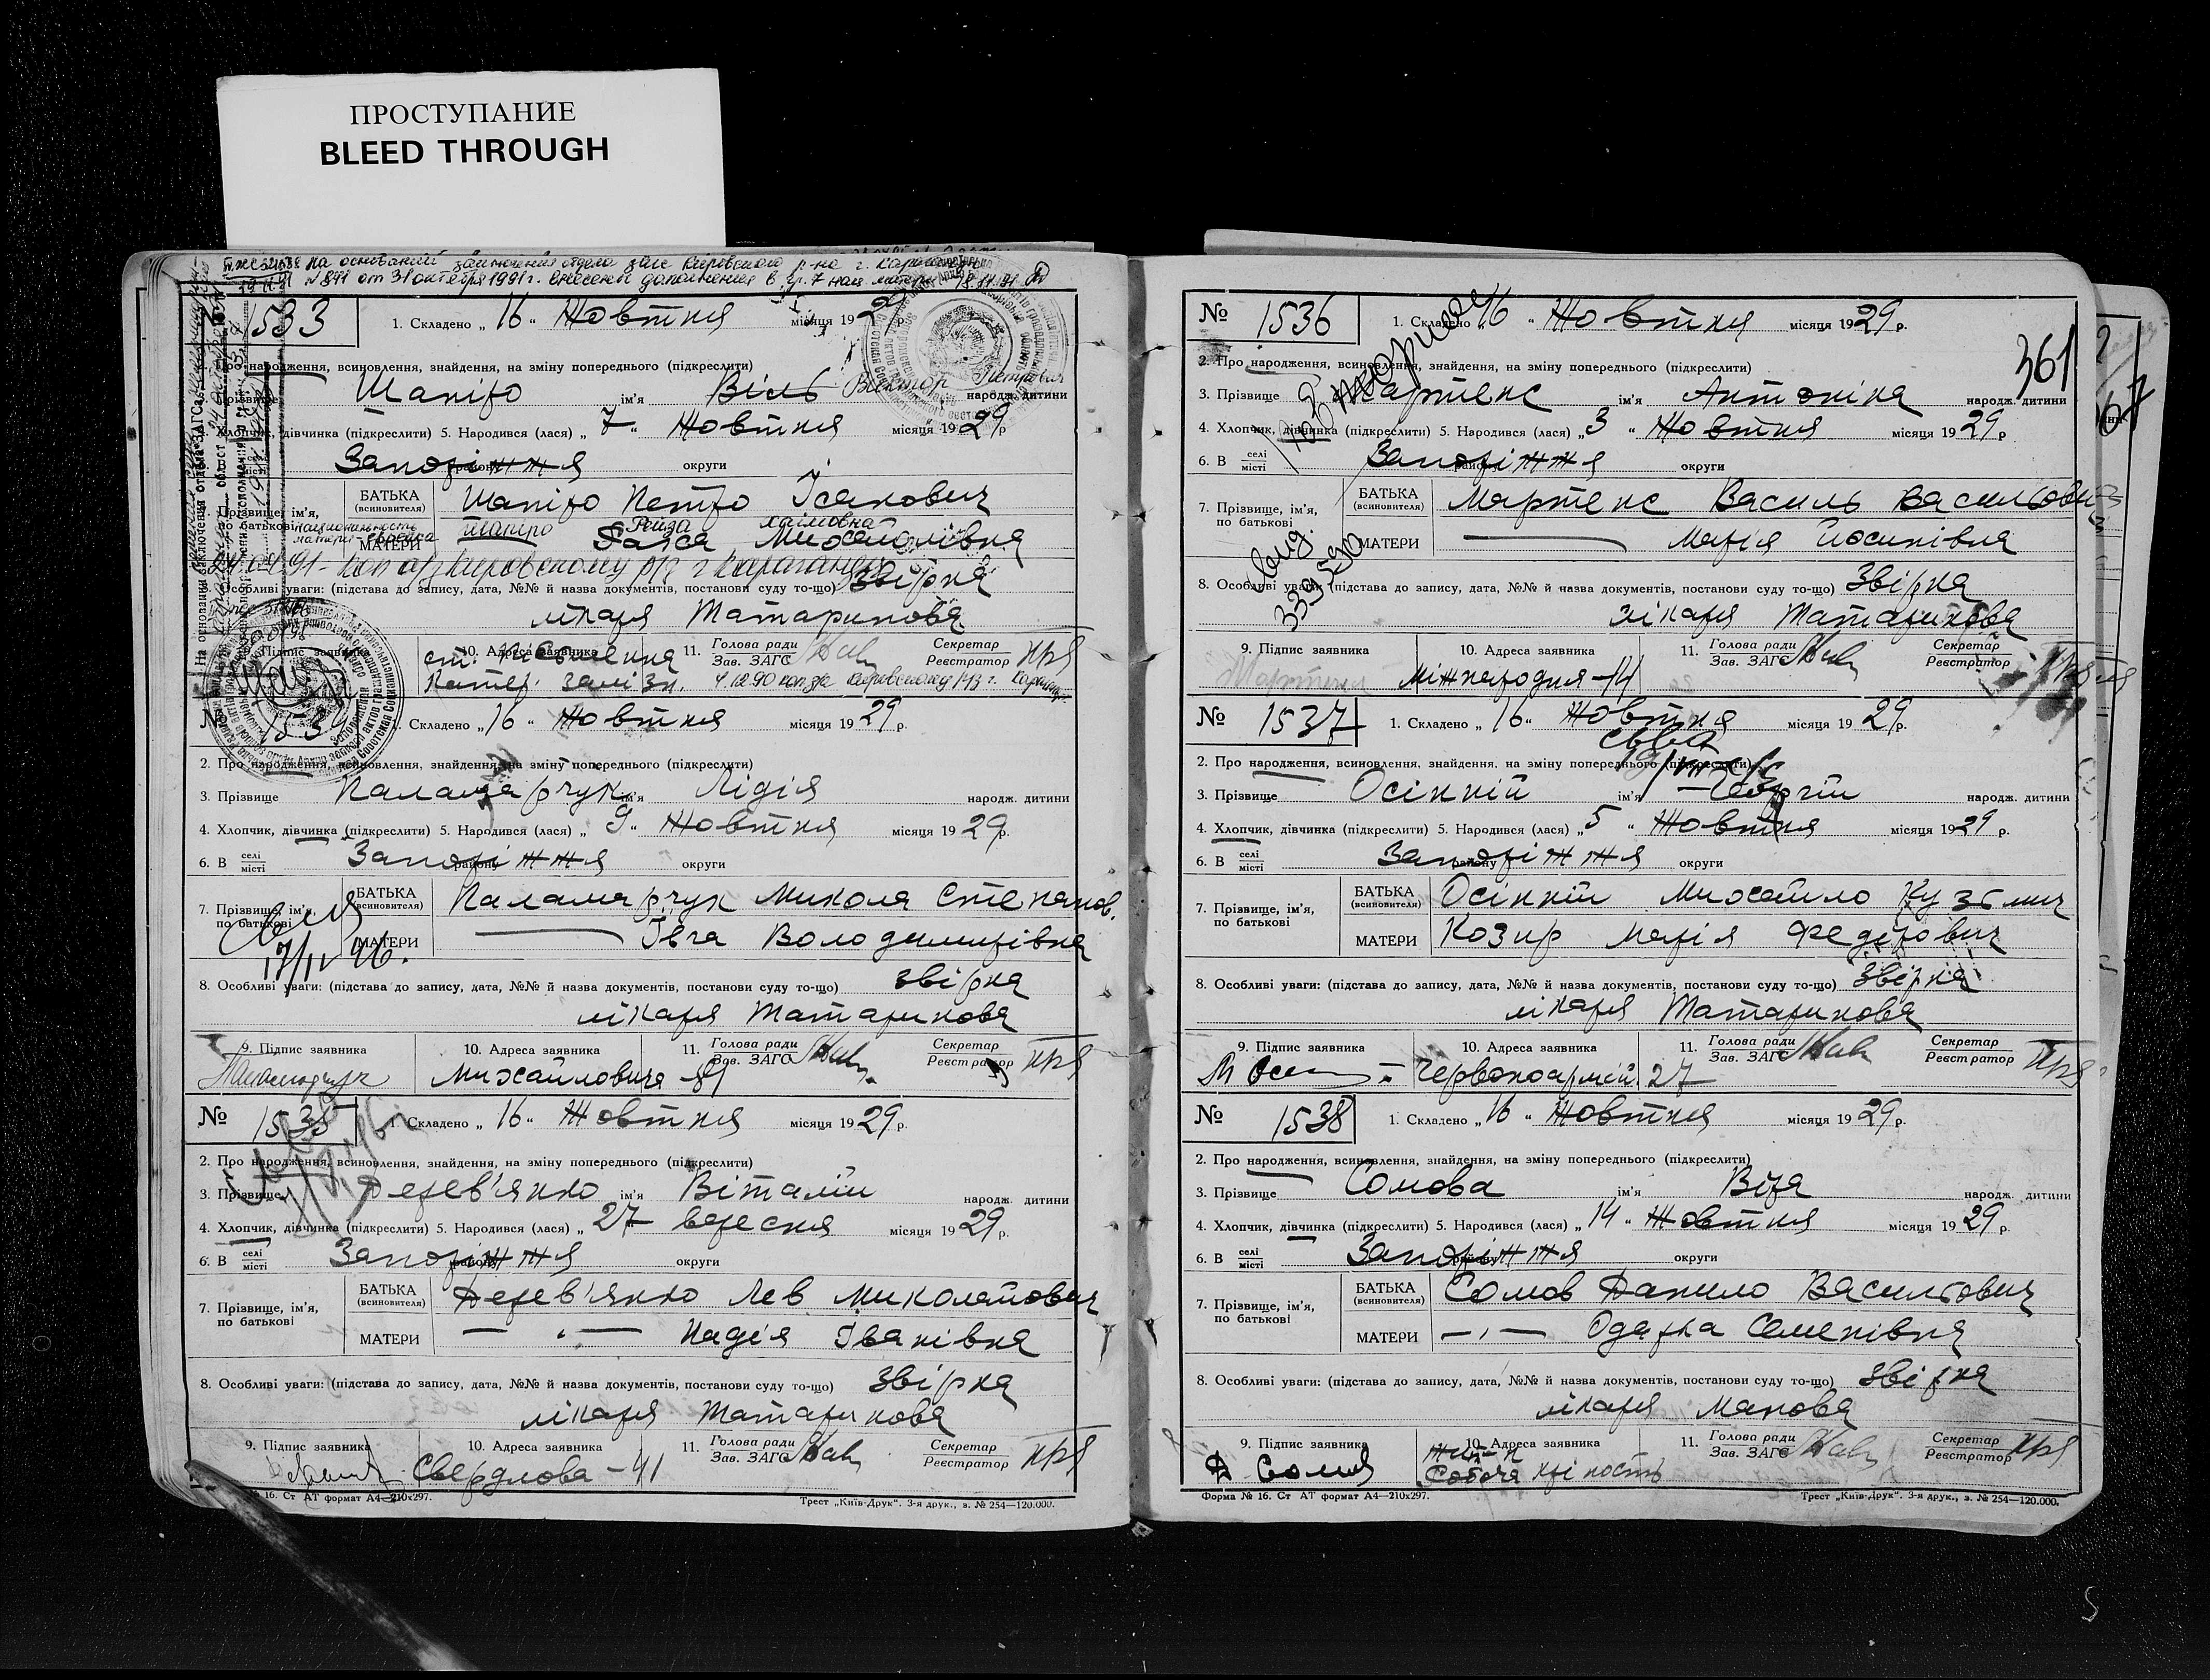 ПРОСТУПАНИЕ
BLEED THROUGH
на основании заключения отдела загс Кировского р-на г. Караганды
№ 871 от 31 октября 1991 г. внесены дополнения в гр. 7 нац. матери 18.11.91
1533
1. Складено „ 16 “ Жовтня місяця 1929 р.
2. Про народження, всиновлення, знайдення, на зміну попереднього (підкреслити)
3. Прізвище Шапіро ім'я Віль Виктор Петрович народж. дитини
4. Хлопчик, дівчинка (підкреслити) 5. Народився (лася) „ 7 “ Жовтня місяця 1929 р
місті Запоріжжя району округи
7. Прізвище, ім'я, по батькові
БАТЬКА (всиновителя) Шапіро Петро Ісакович
национальность матери - еврейка
шапиро Рейза хаимовна
МАТЕРИ Раїса Михайлівна
8. Особливі уваги: (підстава до запису, дата, №№ й назва документів, постанови суду то-що) Звірка
лікаря Татаринова
9. Підпис заявника 10. Адреса заявника 11. Голова ради Зав. ЗАГС Секретар Реєстратор
Катер. залізн.
№ 1534
1. Складено „ 16 “ Жовтня місяця 1929 р.
2. Про народження, всиновлення, знайдення, на зміну попереднього (підкреслити)
3. Прізвище Паламарчук ім'я Лідія народж. дитини
4. Хлопчик, дівчинка (підкреслити) 5. Народився (лася) „ 9 “ Жовтня місяця 1929 р.
6. В селі місті Запоріжжя району округи
7. Прізвище, ім'я, по батькові
БАТЬКА (всиновителя) Паламарчук Микола Степанов.
МАТЕРИ — Івга Володимирівна
17/IV 46.
8. Особливі уваги: (підстава до запису, дата, №№ й назва документів, постанови суду то-що) звірка
лікаря Татаринова
9. Підпис заявника 10. Адреса заявника 11. Голова ради Зав. ЗАГС Секретар Реєстратор
Михайловича
№ 1535
1. Складено „ 16 “ Жовтня місяця 1929 р.
2. Про народження, всиновлення, знайдення, на зміну попереднього (підкреслити)
3. Прізвище Дерев'янко ім'я Віталій народж. дитини
4. Хлопчик, дівчинка (підкреслити) 5. Народився (лася) „ 27 вересня місяця 1929 р.
6. В селі місті Запоріжжя району округи
7. Прізвище, ім'я, по батькові
БАТЬКА (всиновителя) Дерев'янко Лев Миколайович
МАТЕРИ — " — Надія Іванівна
8. Особливі уваги: (підстава до запису, дата, №№ й назва документів, постанови суду то-що) звірка
лікаря Татаринова
9. Підпис заявника 10. Адреса заявника 11. Голова ради Зав. ЗАГС Секретар Реєстратор
Свердлова - 41
№ 16. Ст АТ формат А4—210х297. Трест „Київ-Друк“. 3-я друк., з. № 254—120.000.
№ 1536
1. Складено 16 “ Жовтня місяця 1929 р.
361
2. Про народження, всиновлення, знайдення, на зміну попереднього (підкреслити)
3. Прізвище Мартенс ім'я Антоніна народж. дитини
4. Хлопчик, дівчинка (підкреслити) 5. Народився (лася) „ 3 “ Жовтня місяця 1929 р
6. В селі місті Запоріжжя району округи
7. Прізвище, ім'я, по батькові
БАТЬКА (всиновителя) Мартенс Василь Васильович
МАТЕРИ — Марія Йосипівна
8. Особливі уваги: (підстава до запису, дата, №№ й назва документів, постанови суду то-що) Звірка
лікаря Татаринова
9. Підпис заявника 10. Адреса заявника 11. Голова ради Зав. ЗАГС Секретар Реєстратор
Міжнародня - 14
№ 1537
1. Складено „ 16 “ Жовтня місяця 1929 р.
2. Про народження, всиновлення, знайдення, на зміну попереднього (підкреслити)
3. Прізвище Осінній ім'я Георгій народж. дитини
4. Хлопчик, дівчинка (підкреслити) 5. Народився (лася) „ 5 “ Жовтня місяця 1929 р.
6. В селі місті Запоріжжя району округи
7. Прізвище, ім'я, по батькові
БАТЬКА (всиновителя) Осінній Михайло Кузьмич
МАТЕРИ Козир Марія Федорович
8. Особливі уваги: (підстава до запису, дата, №№ й назва документів, постанови суду то-що) Звірка
лікаря Татаринова
9. Підпис заявника 10. Адреса заявника 11. Голова ради Зав. ЗАГС Секретар Реєстратор
Червоноармій. 27
№ 1538
1. Складено „ 16 “ Жовтня місяця 1929 р.
2. Про народження, всиновлення, знайдення, на зміну попереднього (підкреслити)
3. Прізвище Сомова ім'я Віра народж. дитини
4. Хлопчик, дівчинка (підкреслити) 5. Народився (лася) „ 14 “ Жовтня місяця 1929 р.
6. В селі місті Запоріжжя району округи
7. Прізвище, ім'я, по батькові
БАТЬКА (всиновителя) Сомов Данило Васильович
МАТЕРИ — " — Одарка Семенівна
8. Особливі уваги: (підстава до запису, дата, №№ й назва документів, постанови суду то-що) Звірка
лікаря Манова
9. Підпис заявника 10. Адреса заявника 11. Голова ради Зав. ЗАГС Секретар Реєстратор
Собача кріпость
Форма № 16. Ст АТ формат А4—210х297. Трест „Київ-Друк“. 3-я друк., з. № 254—120.000.